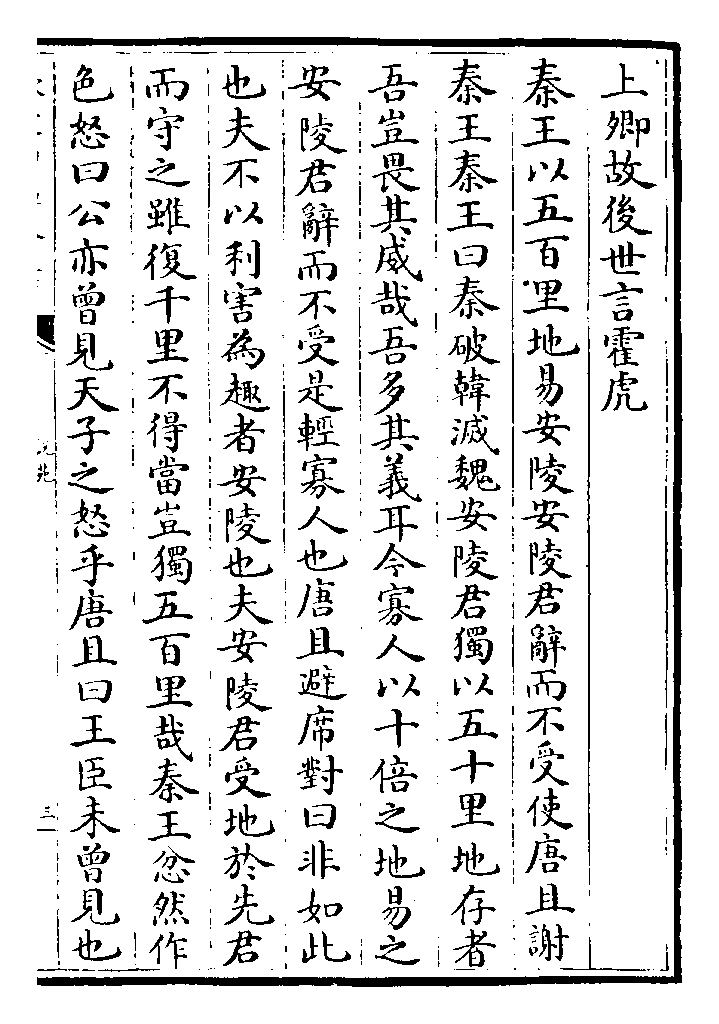 上卿故後世言霍虎
秦王以五百里地易安陵安陵君辭而不受使唐且謝
秦王秦王曰秦破韓滅魏安陵君獨以五十里地存者
吾豈畏其威哉吾多其義耳今寡人以十倍之地易之
安陵君辭而不受是輕寡人也唐且避席對曰非如此
也夫不以利害為趣者安陵也夫安陵君受地於先君
而守之雖復千里不得當豈獨五百里哉秦王忿然作
色怒曰公亦曾見天子之怒乎唐且曰王臣未曾見也